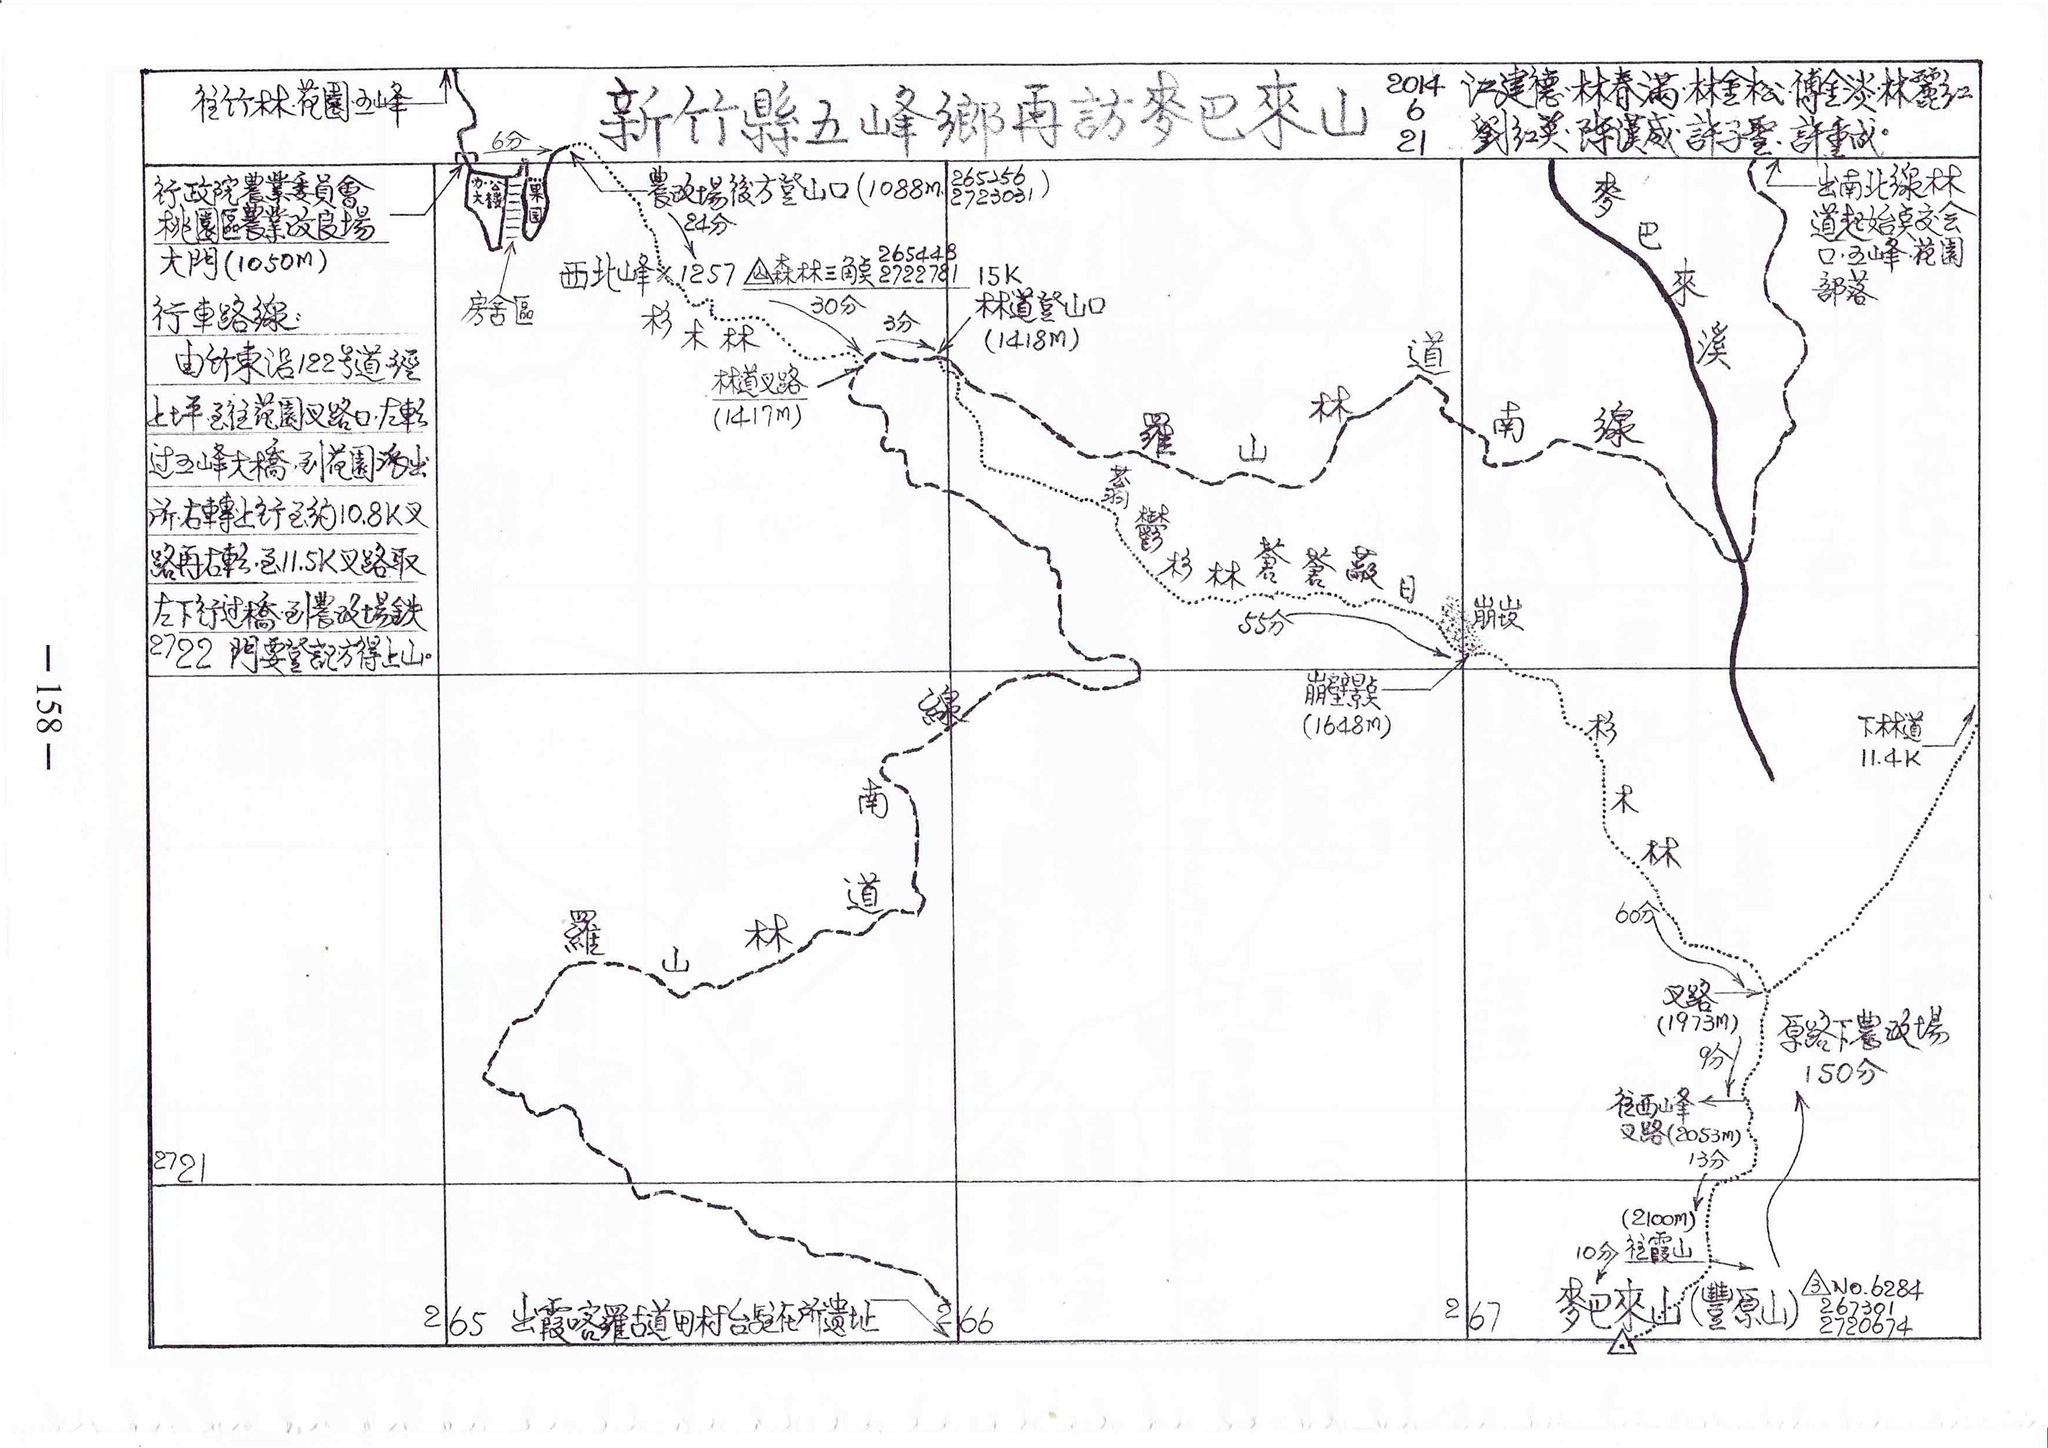 往竹林·花園·五峰
新竹縣五峰鄉再訪麥巴來山
2014
6
21
江建德·林春滿·林金松·傅金淡·林麗紅
劉紅英·陳漢威·許子聖·許重成。
6分
行政院農業委員會
桃園區農業改良場
大門(1050M)
辦公大樓
果園
房舍區
農改場後方登山口(1088M, 265256
2723031)
24分
西北峰×1257 森林三角點 265448
2722781
30分
3分
15K
林道登山口
(1418M)
杉木林
林道叉路
(1417M)
行車路線:
由竹東沿122號道經
上坪·至往花園叉路口·左轉
过五峰大橋·到花園派出
所·右轉上行至約10.8K叉
路再右轉·至11.5K叉路取
左下行过橋·到農改場鉄
門要登記方得上山。
2722
麥巴來溪
出南北線林
道起始点交会
口·五峰·花園
部落
羅山林道南線
蓊鬱杉林蒼蒼蔽日
55分
崩崁
崩壁景点
(1648M)
杉木林
下林道
11.4K
60分
叉路
(1973M)
9分
原路下農改場
150分
往西峰
叉路(2053M)
13分
(2100M)
往霞山
10分
麥巴來山(豐原山)
3 No.6284
267301
2720674
羅山林道南線
2721
265
出霞喀羅古道田村台駐在所遺址
266
267
—158—